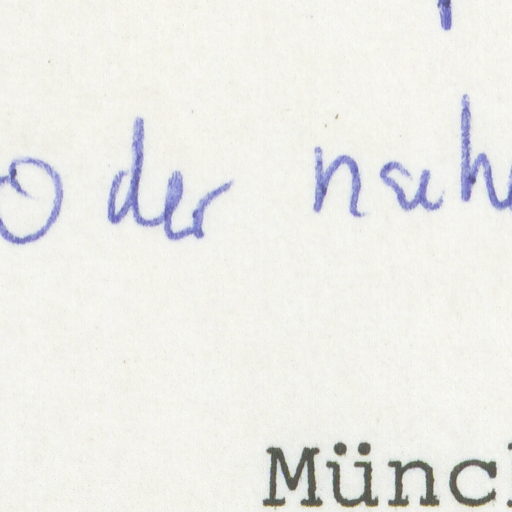 oder nach
Münch